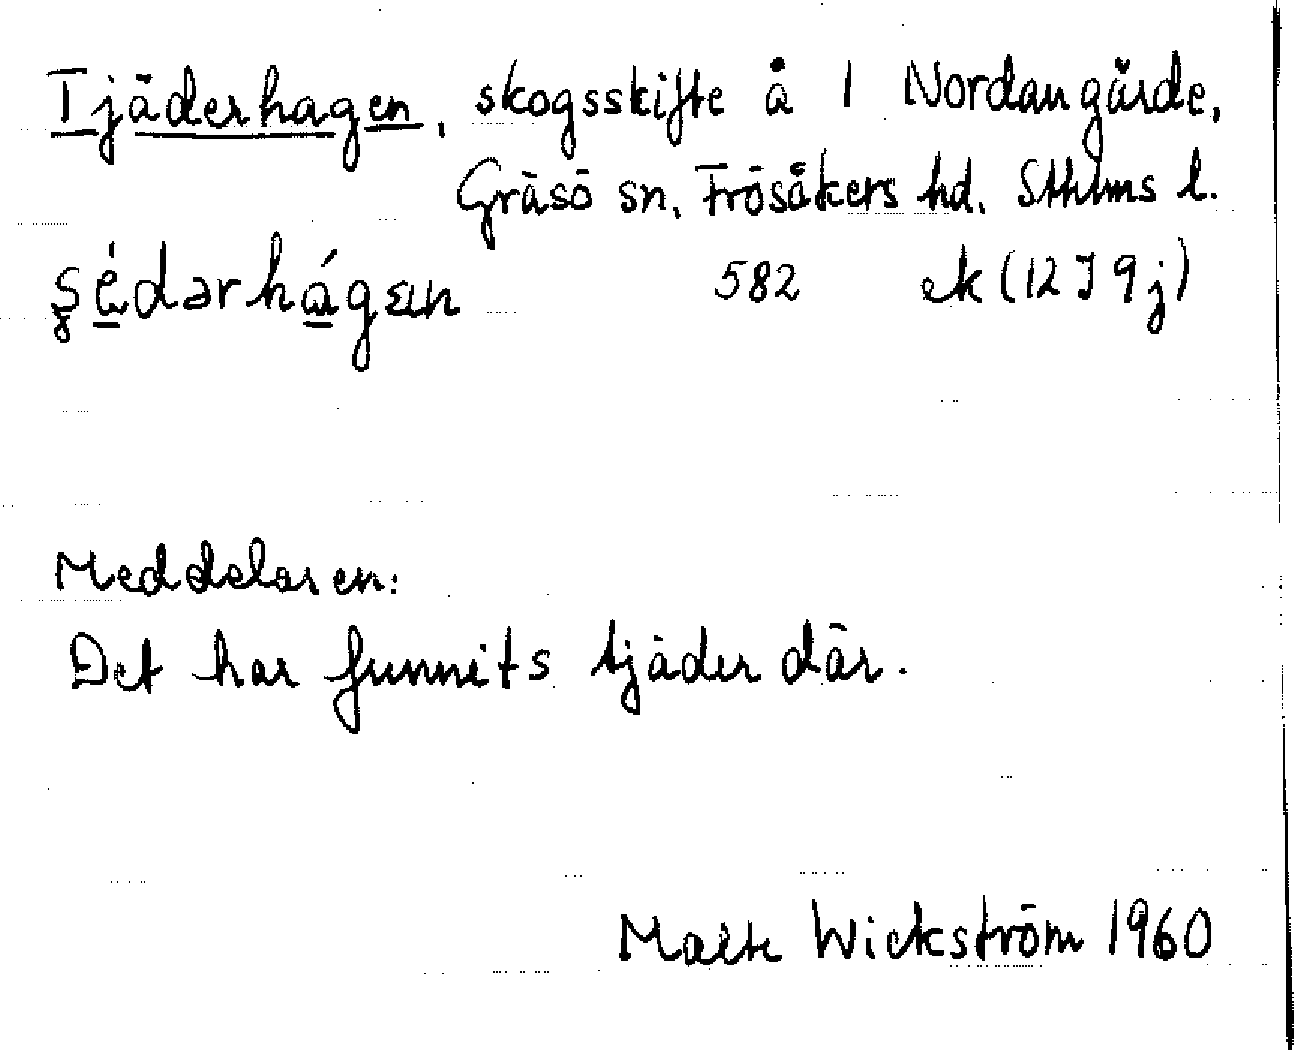 Tjäderhagen, skogsskifte å 1 Nordangärde,
Gräsö sn, Frösåkers hd. Sthlms l.
582 ek (12 I 9 j)
Meddelaren:
Det har funnits tjäder där.
Malte Wickström 1960